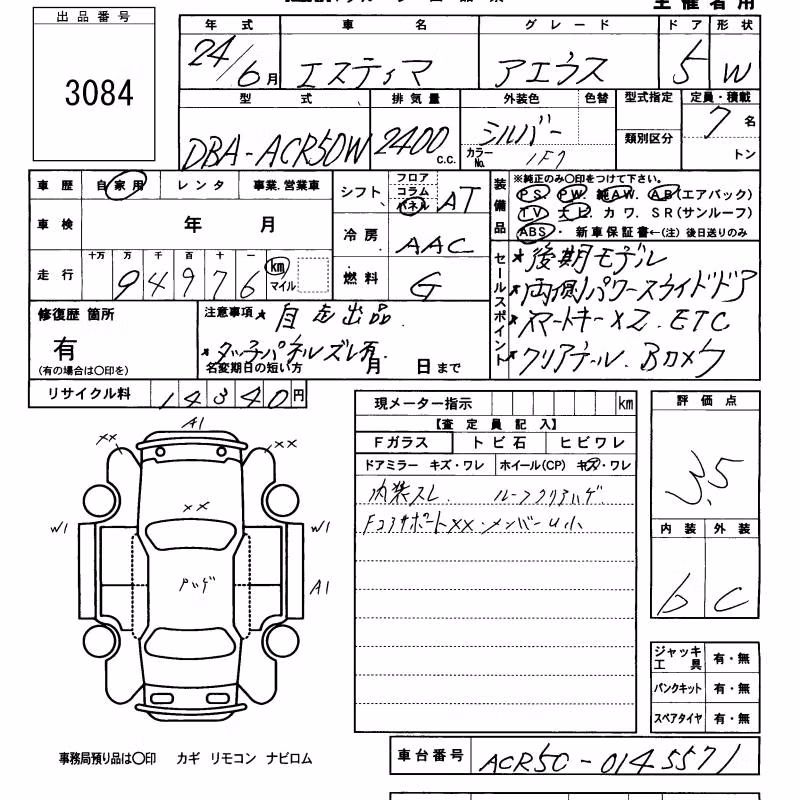 主催者用
出品番号
3084
年式 車名 グレード ドア 形状
24/6月 エスティマ アエラス 5 W
型式 排気量 外装色 色替 型式指定 定員・積載
DBA-ACR50W 2400 c.c. シルバー 類別区分 7名
カラーNo. 1F7 トン
車歴 自家用 レンタ 事業.営業車
車検 年 月
十万 万 千 百 十 一
走行 9 4 9 7 6 km マイル
シフト フロア コラム パネル AT
冷房 AAC
燃料 G
装備品 ※純正のみ○印をつけて下さい。
PS. PW. 純AW. AB(エアバック)
TV ナビ. カワ. SR(サンルーフ)
ABS・ 新車保証書←(注) 後日送りのみ
セールスポイント
★後期モデル
★両側パワースライドドア
★スマートキー×2. ETC
★クリアテール. Bカメラ
修復歴 箇所
有
(有の場合は○印を)
注意事項★ 自走出品.
★タッチパネルズレ有.
名変期日の短い方 月 日まで
リサイクル料 14340円
現メーター指示 km
【査定員記入】
Fガラス トビ石 ヒビワレ
ドアミラー キズ・ワレ ホイール(CP) キズ・ワレ
内装スレ. ルーフクリアハゲ
Fコアサポートxx・メンバーU小
評価点
3.5
内装 外装
b C
A1
xx xx
xx
W1 W1
Pハゲ A1
ジャッキ工具 有・無
パンクキット 有・無
スペアタイヤ 有・無
事務局預り品は○印 カギ リモコン ナビロム
車台番号 ACR50-0145571